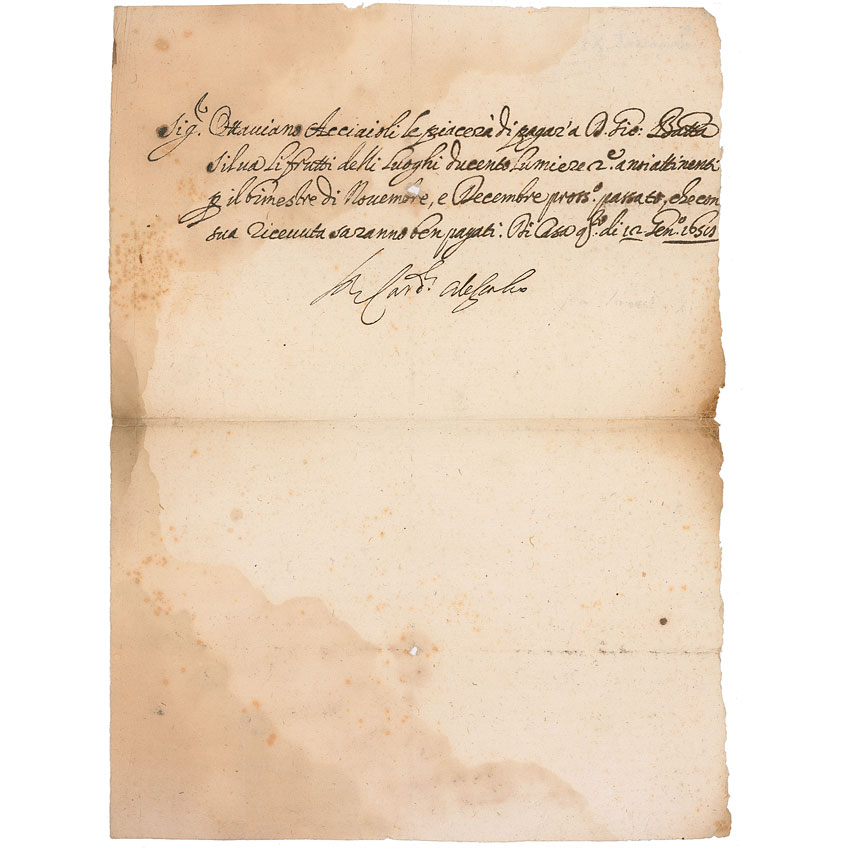 Sig.r Ottaviano Acciaioli le piacerà di pagar'a D. Gio: Batta
Silua li frutti delli luoghi ducento Lumiere 2.e a noi attinenti
p il bimestre di Nouembre, e Decembre pross.o passato, che con
sua riceuuta saranno ben pagati. Di Casa q.to di 12 Gen.o
Il Card.